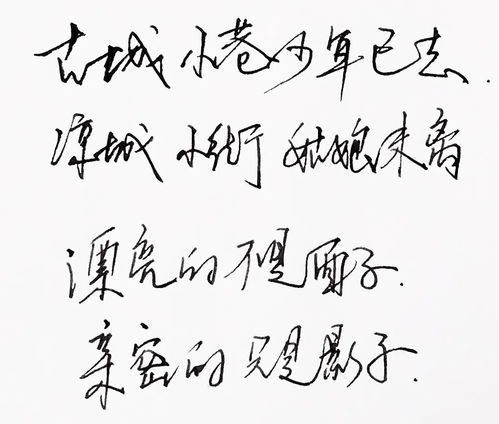 古城小巷少年已去.
凉城小街姑娘未离
漂亮的不是面子.
亲密的只是影子.